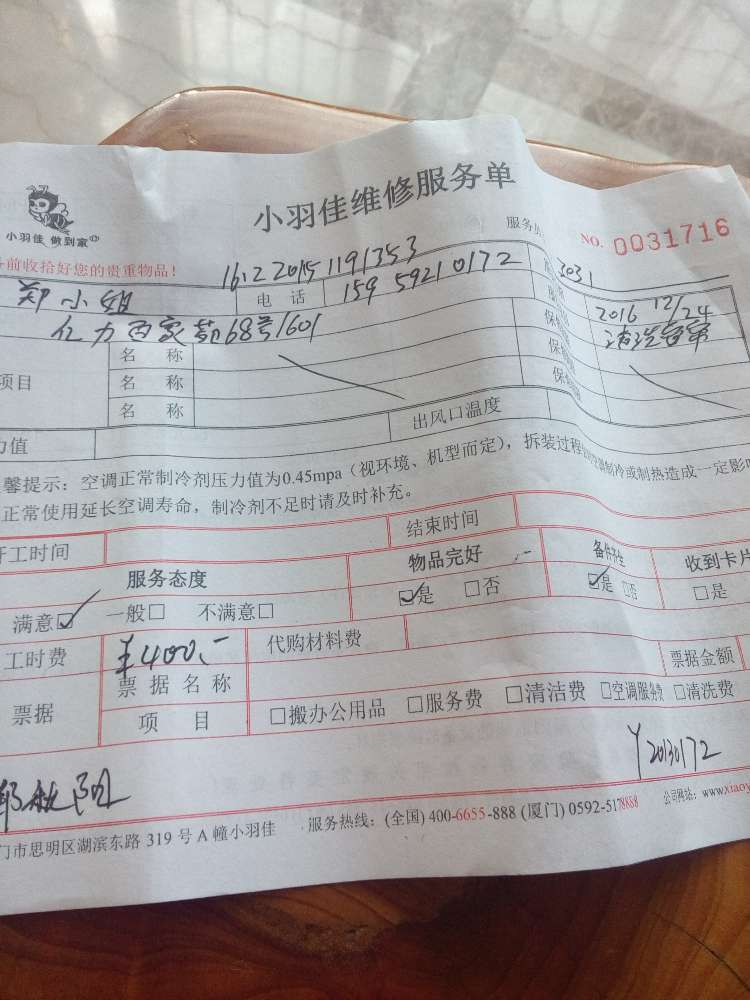 小羽佳维修服务单
小羽佳 做到家
服务
NO. 0031716
前收拾好您的贵重物品!
郑小姐 电 话 159 5921 0172 3031
亿力百家苑68号1601 2016 12/24
项目 名 称 保
名 称 保
名 称 保
力值 出风口温度
馨提示:空调正常制冷剂压力值为0.45mpa(视环境、机型而定),拆装过程 制冷或制热造成一定影响
正常使用延长空调寿命,制冷剂不足时请及时补充。
开工时间 结束时间
服务态度 物品完好 备件齐全 收到卡片
满意☑ 一般□ 不满意□ ☑是 □否 ☑是 □否 □是
工时费 ¥400.- 代购材料费
票据 票据名称 票据金额
项 目 □搬办公用品 □服务费 □清洁费 □空调服务费 □清洗费
Y20130172
门市思明区湖滨东路 319 号 A 幢小羽佳 服务热线:(全国) 400-6655-888 (厦门) 0592-5178888 公司网站:www.xiaoy